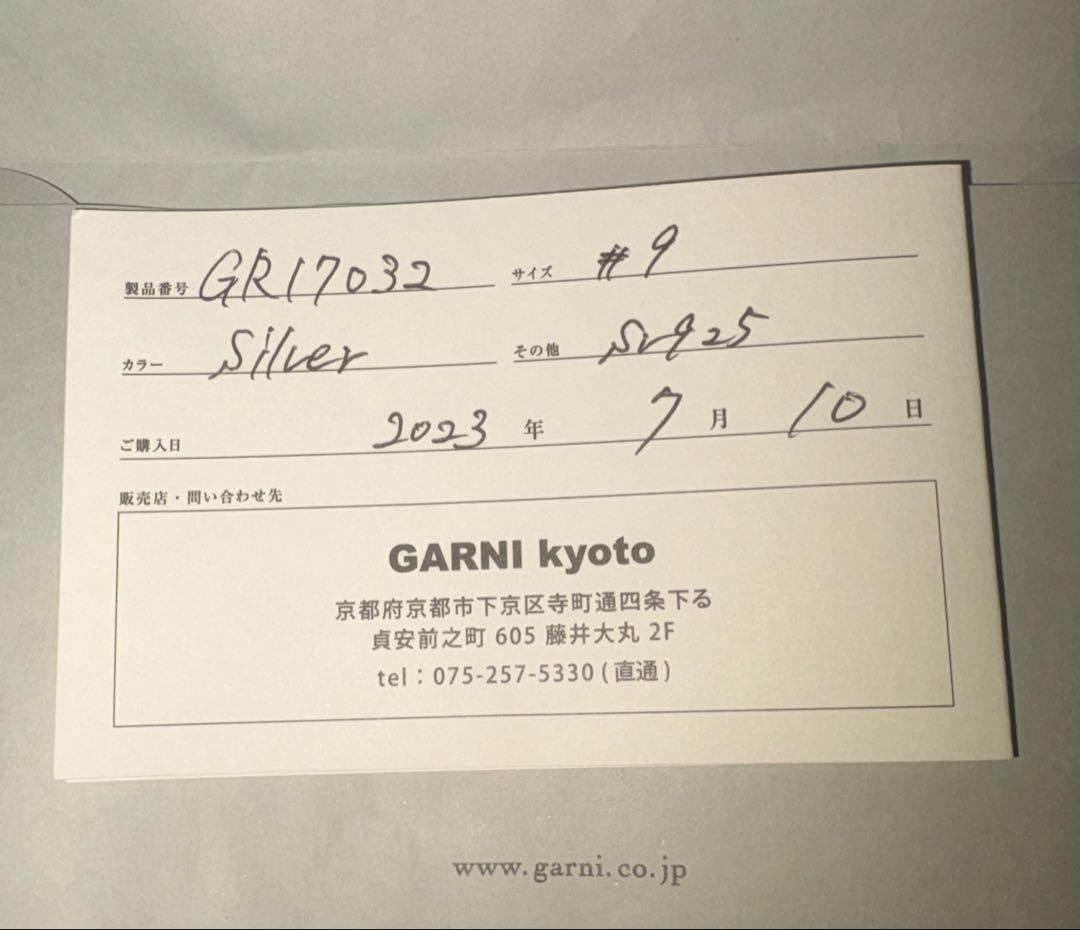 製品番号 GR17032 サイズ #9
カラー Silver その他 Sv925
ご購入日 2023 年 7 月 10 日
販売店・問い合わせ先
GARNI kyoto
京都府京都市下京区寺町通四条下る
貞安前之町 605 藤井大丸 2F
tel : 075-257-5330 (直通)
www.garni.co.jp